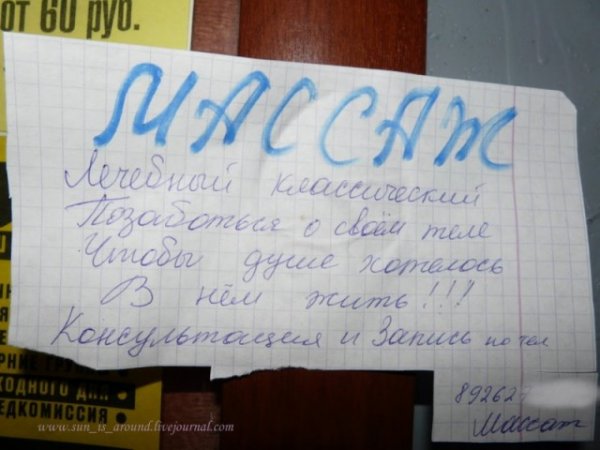 от 60 руб.
МАССАЖ
Лечебный классический
Позаботься о своём теле
Чтобы душе хотелось
В нём жить!!!
Консультация и Запись по тел
892629
Массаж
ХОДНОГО ДНЯ
ЕДКОМИССИЯ
www.sun_is_around.livejournal.com